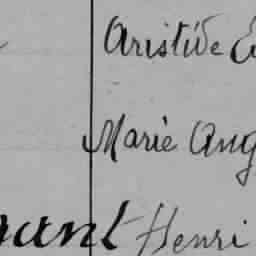 Aristide E
Marie Ang
gant Henri